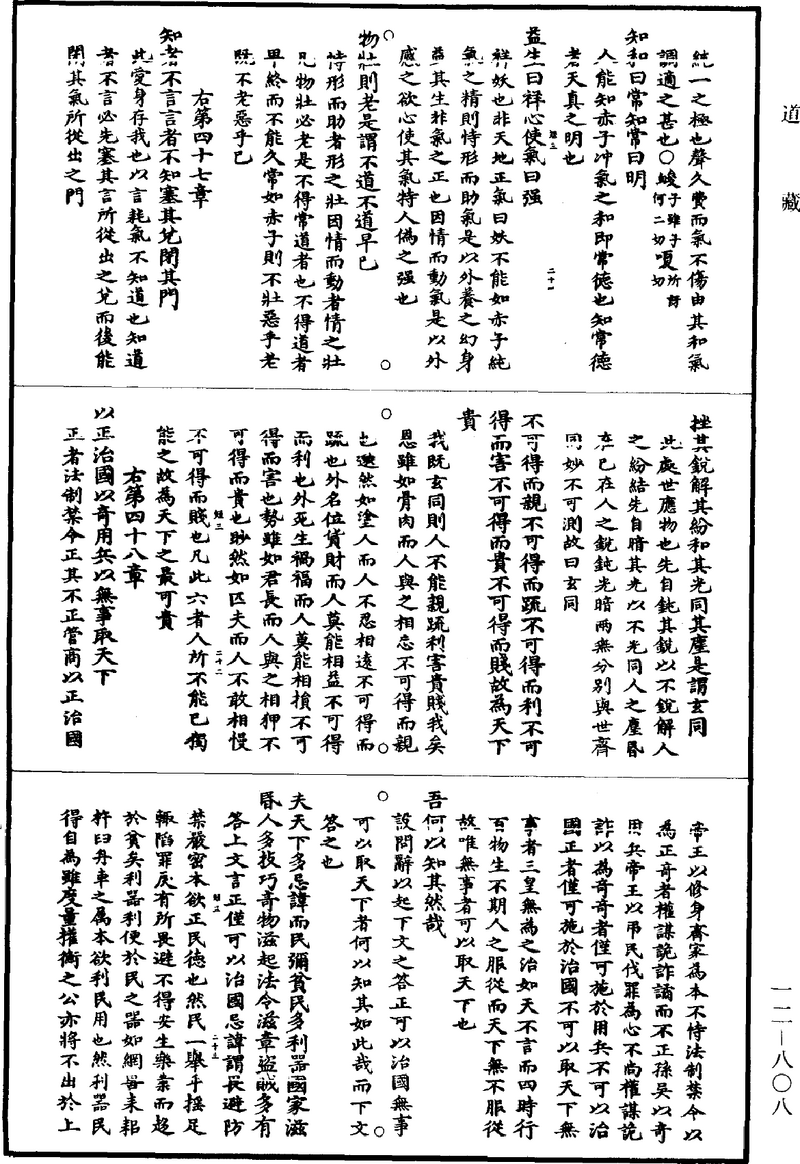 道藏
統一之極也聲久費而氣不傷由其和氣
調適之甚也〇㕙子雖子何二切嗄所訝切
知和曰常知常曰明
人能知赤子冲氣之和即常德也知常德
者天真之明也
益生曰祥心使氣曰强
祥妖也非天地正氣曰妖不能如赤子純
氣之精則恃形而助氣是以外養之幻身
益其生非氣之正也因情而動氣是以外
感之欲心使其氣特人僞之强也
物壯則老是謂不道不道早已
恃形而助者形之壯因情而動者情之壯
凡物壯必老是不得常道者也不得道者
早終而不能久常如赤子則不壯惡乎老
既不老惡乎已
右第四十七章
知者不言言者不知塞其兌閉其門
此愛身存我也以言耗氣不知道也知道
者不言必先塞其言所從出之兌而後能
閉其氣所從出之門
挫其銳解其紛和其光同其塵是謂玄同
此處世應物也先自鈍其銳以不銳解人
之紛結先自暗其光以不光同人之塵昏
在己在人之銳鈍光暗兩無分別與世齊
同妙不可測故曰玄同
不可得而親不可得而疏不可得而利不可
得而害不可得而貴不可得而賤故為天下
貴
我既玄同則人不能親疏利害貴賤我矣
恩雖如骨肉而人與之相忘不可得而親
也邈然如塗人而人不忍相遠不可得而
疏也外名位貨財而人莫能相益不可得
而利也外死生禍福而人莫能相損不可
得而害也勢雖如君長而人與之相狎不
可得而貴也眇然如匹夫而人不敢相慢
不可得而賤也凡此六者人所不能已獨
能之故為天下之最可貴
右第四十八章
以正治國以奇用兵以無事取天下
正者法制禁令正其不正管商以正治國
帝王以修身齊家為本不恃法制禁令以
為正奇者權謀詭詐譎而不正孫吳以奇
用兵帝王以弔民伐罪為心不尚權謀詭
詐以為奇奇者僅可施於用兵不可以治
國正者僅可施於治國不可以取天下無
事者三皇無為之治如天不言而四時行
百物生不期人之服從而天下無不服從
故唯無事者可以取天下也
吾何以知其然哉
設問辭以起下文之答正可以治國無事
可以取天下者何以知其如此哉而下文
答之也
夫天下多忌諱而民彌貧民多利器國家滋
昏人多技巧奇物滋起法令滋章盜賊多有
答上文言正僅可以治國忌諱謂畏避防
禁嚴密本欲正民德也然民一舉手搖足
輒陷罪戾有所畏避不得安生樂業而趨
於貧矣利器利便於民之器如網罟耒耜
杵臼舟車之屬本欲利民用也然利器民
得自為雖度量權衡之公亦將不出於上
一二—八〇八